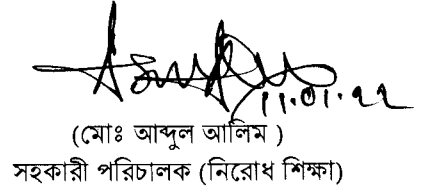 ১১.০১.২২
(মোঃ আব্দুল আলিম )
সহকারী পরিচালক (নিরোধ শিক্ষা)